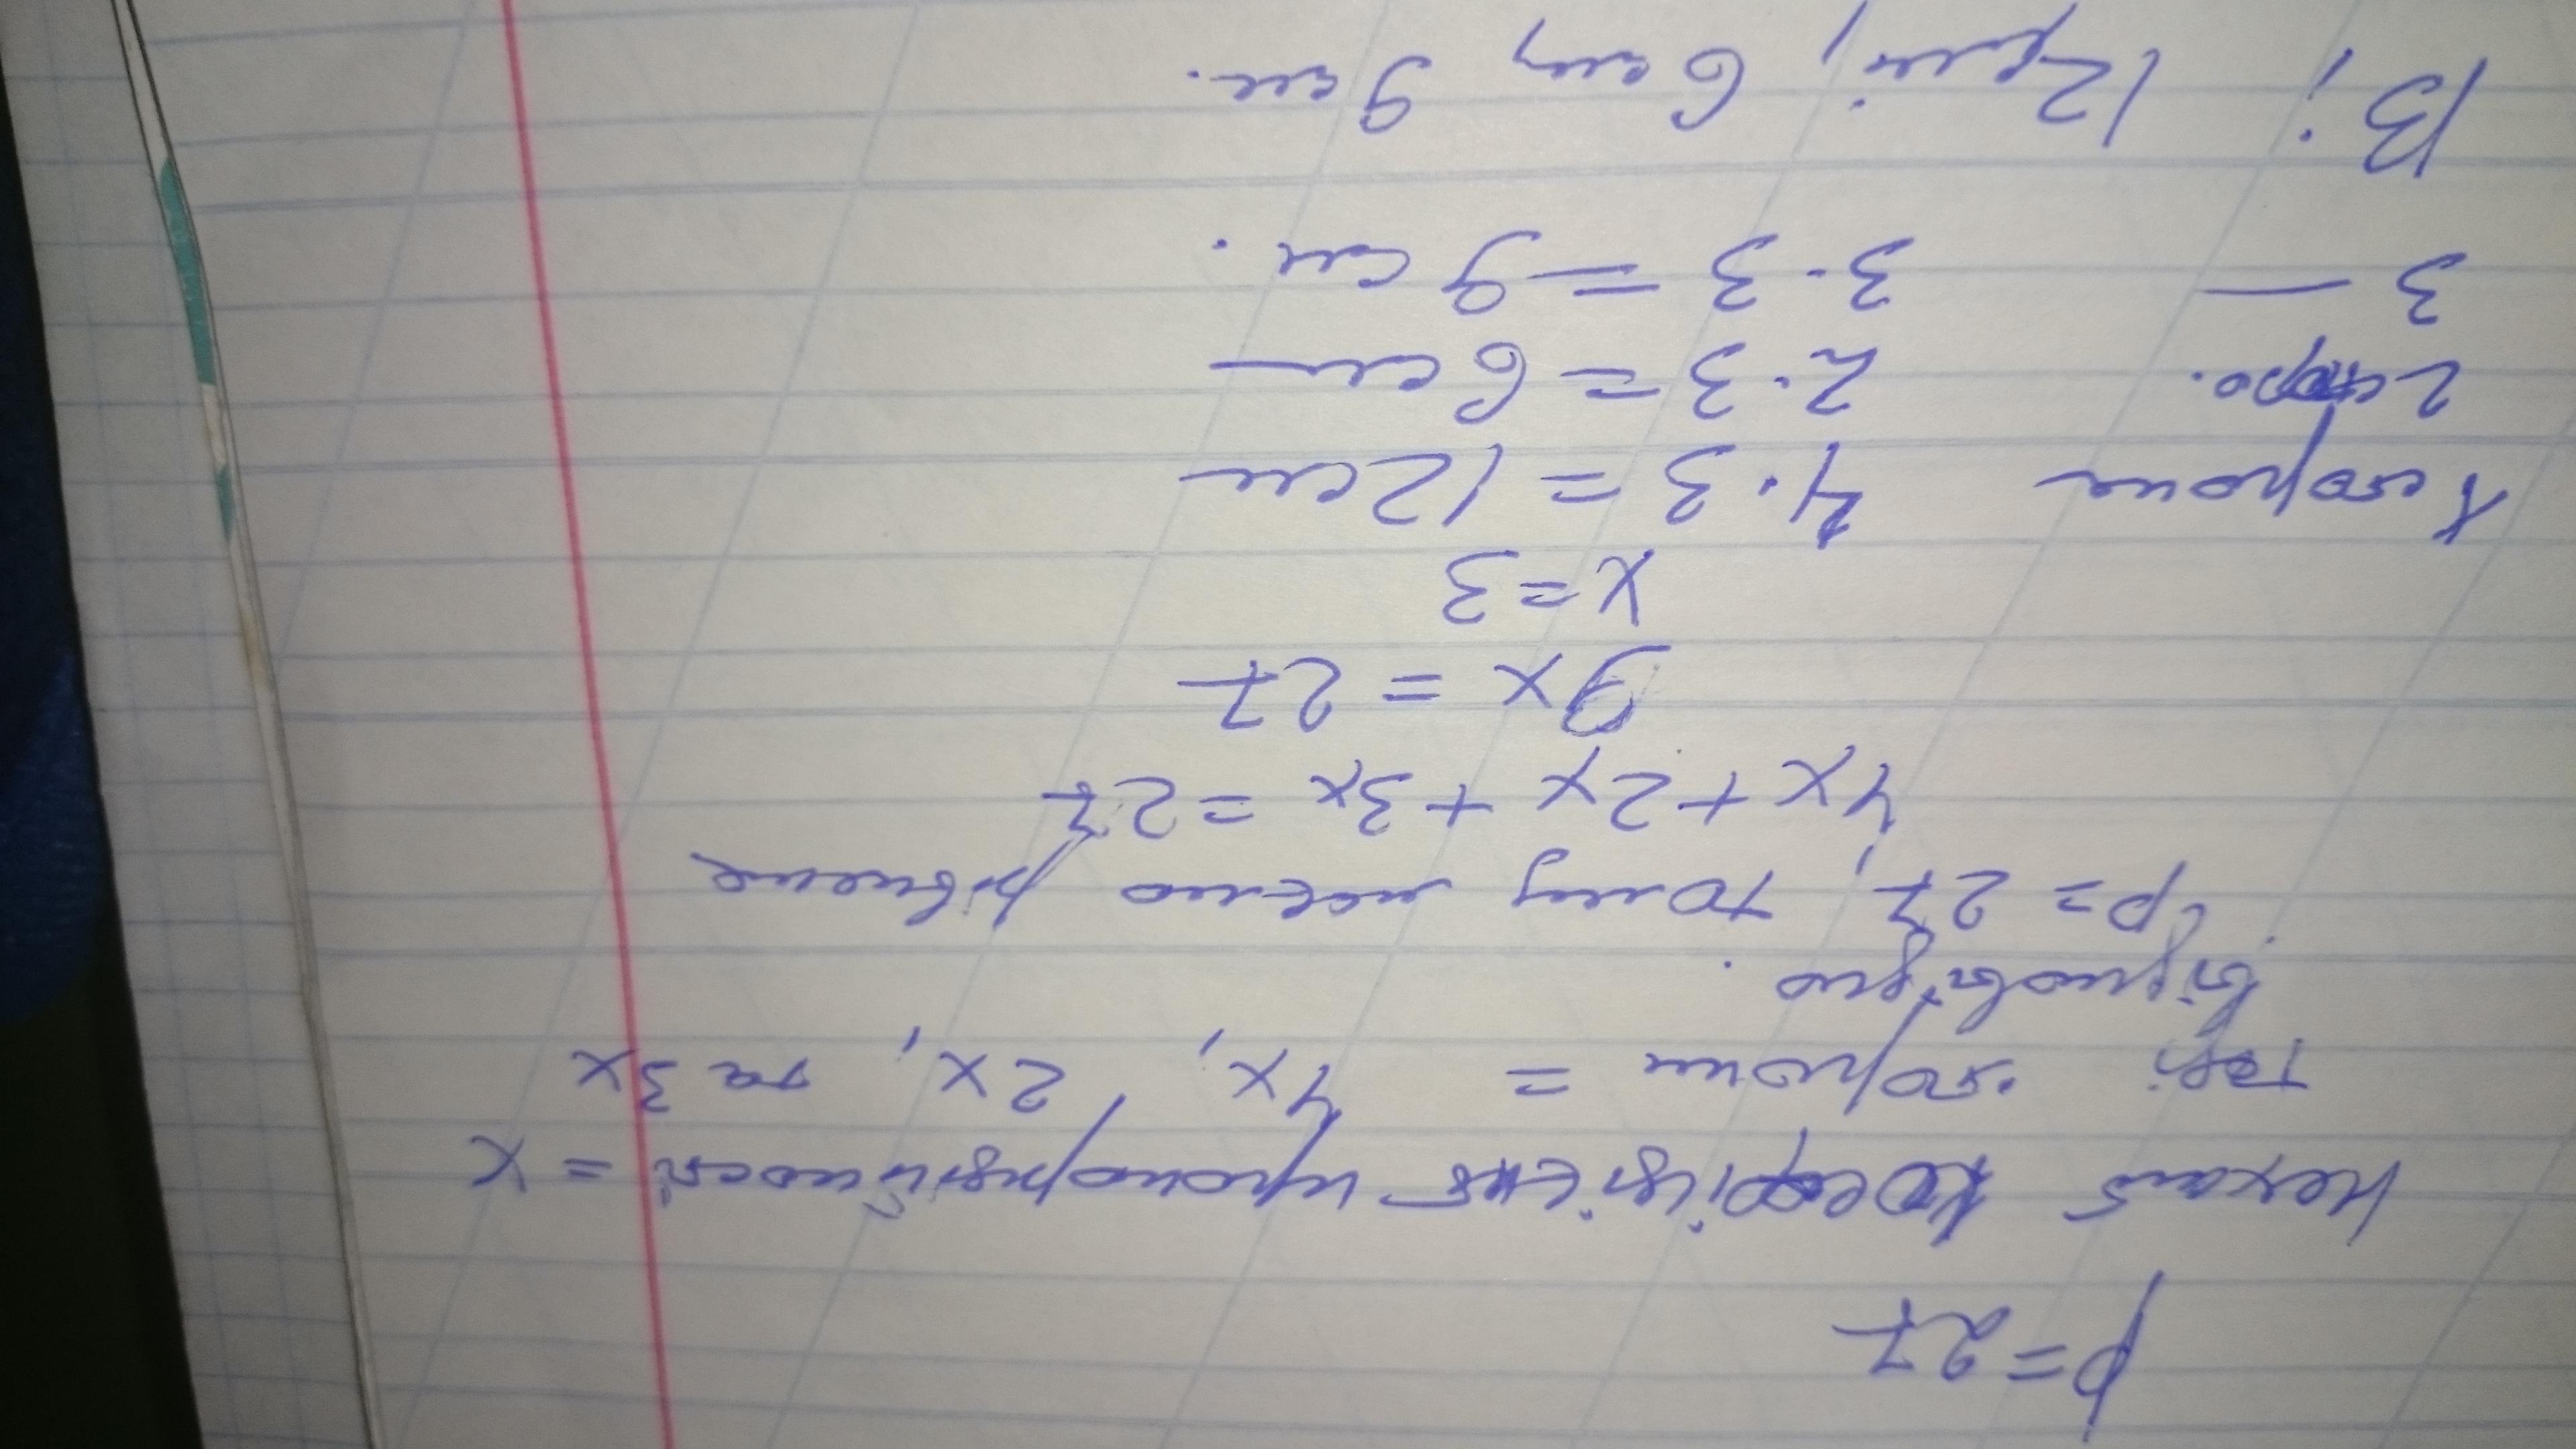 p = 27
Нехай коефіцієнт пропорційності = x
тоді сторони = 4x, 2x, та 3x
відповідно.
p = 27, тому маємо рівняння
4x + 2x + 3x = 27
9x = 27
x = 3
1 сторона 4·3 = 12 см
2 сторо. 2·3 = 6 см
3 — 3·3 = 9 см.
В; 12 см; 6 см, 9 см.